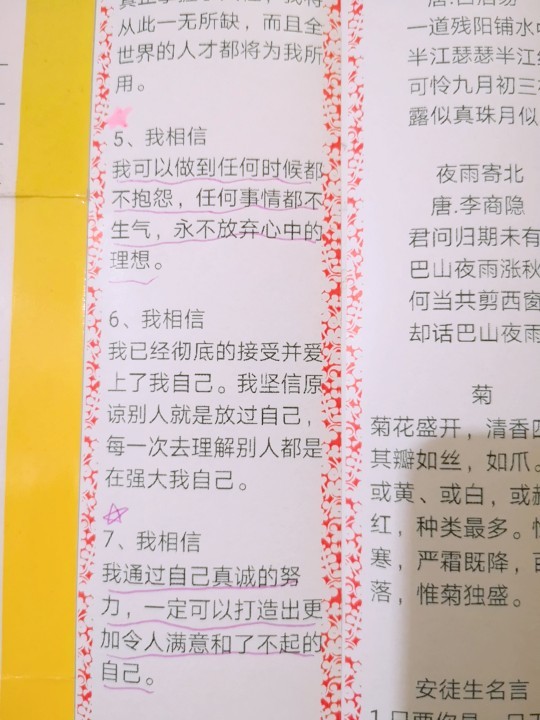 从此一无所缺，而且全
世界的人才都将为我所
用。
5、我相信
我可以做到任何时候都
不抱怨，任何事情都不
生气，永不放弃心中的
理想。
6、我相信
我已经彻底的接受并爱
上了我自己。我坚信原
谅别人就是放过自己，
每一次去理解别人都是
在强大我自己。
7、我相信
我通过自己真诚的努
力，一定可以打造出更
加令人满意和了不起的
自己。
一道残阳铺水
半江瑟瑟半江
可怜九月初三
露似真珠月似
夜雨寄北
唐.李商隐
君问归期未有
巴山夜雨涨秋
何当共剪西窗
却话巴山夜雨
菊
菊花盛开，清香
其瓣如丝，如爪。
或黄、或白，或
红，种类最多。
寒，严霜既降，
落，惟菊独盛。
安徒生名言